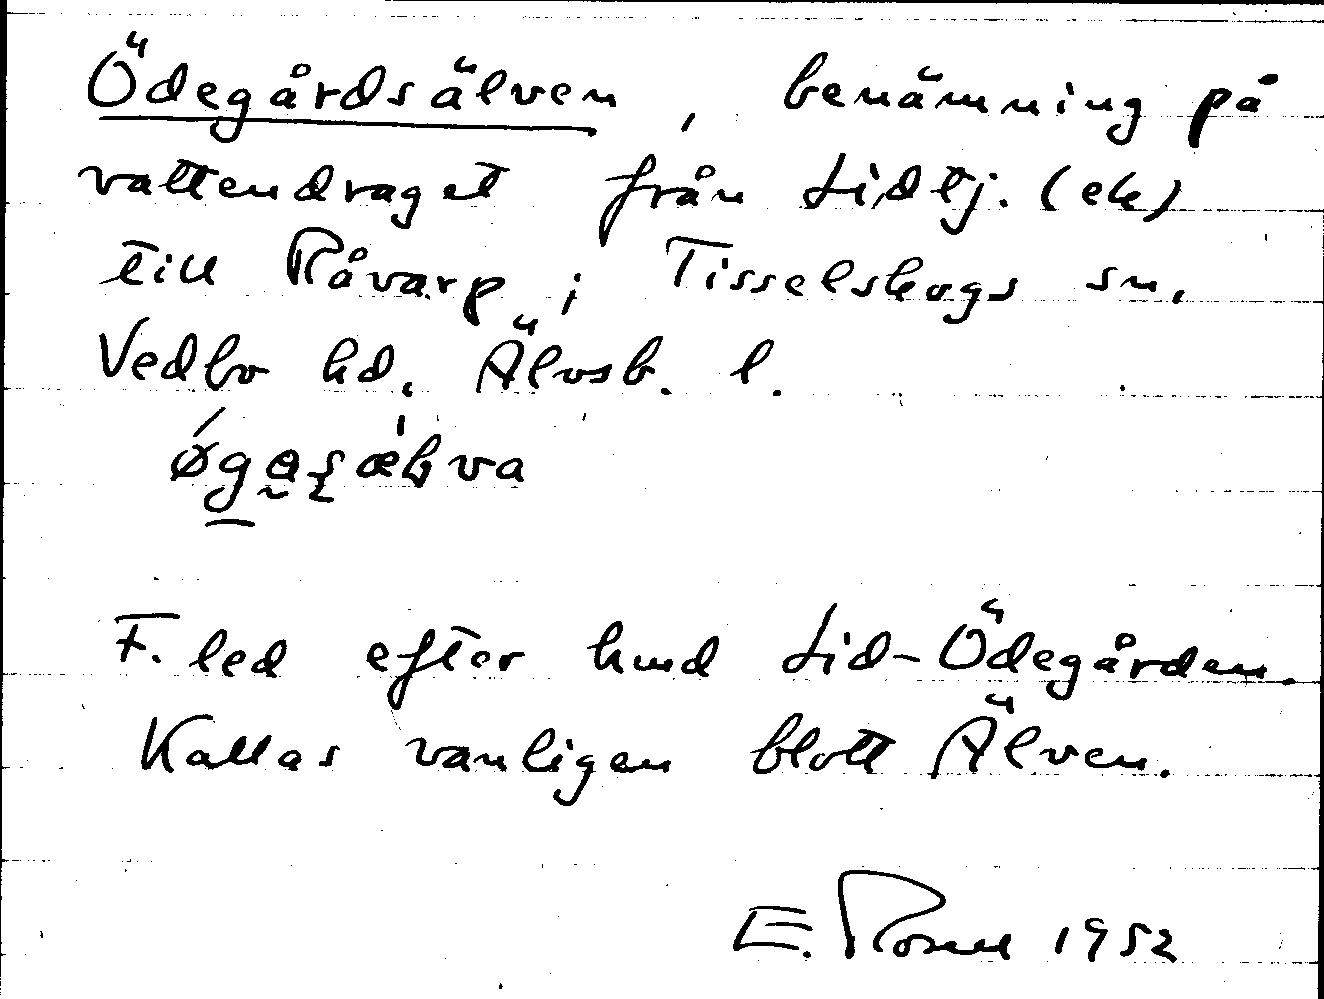 Ödegårdsälven, benämning på
vattendraget från Lidtj. (ek)
till Råvarp i Tisselskogs sn,
Vedbo hd, Älvsb. l.
F. led efter hmd Lid-Ödegården.
Kallas vanligen blott Älven.
E. 1952